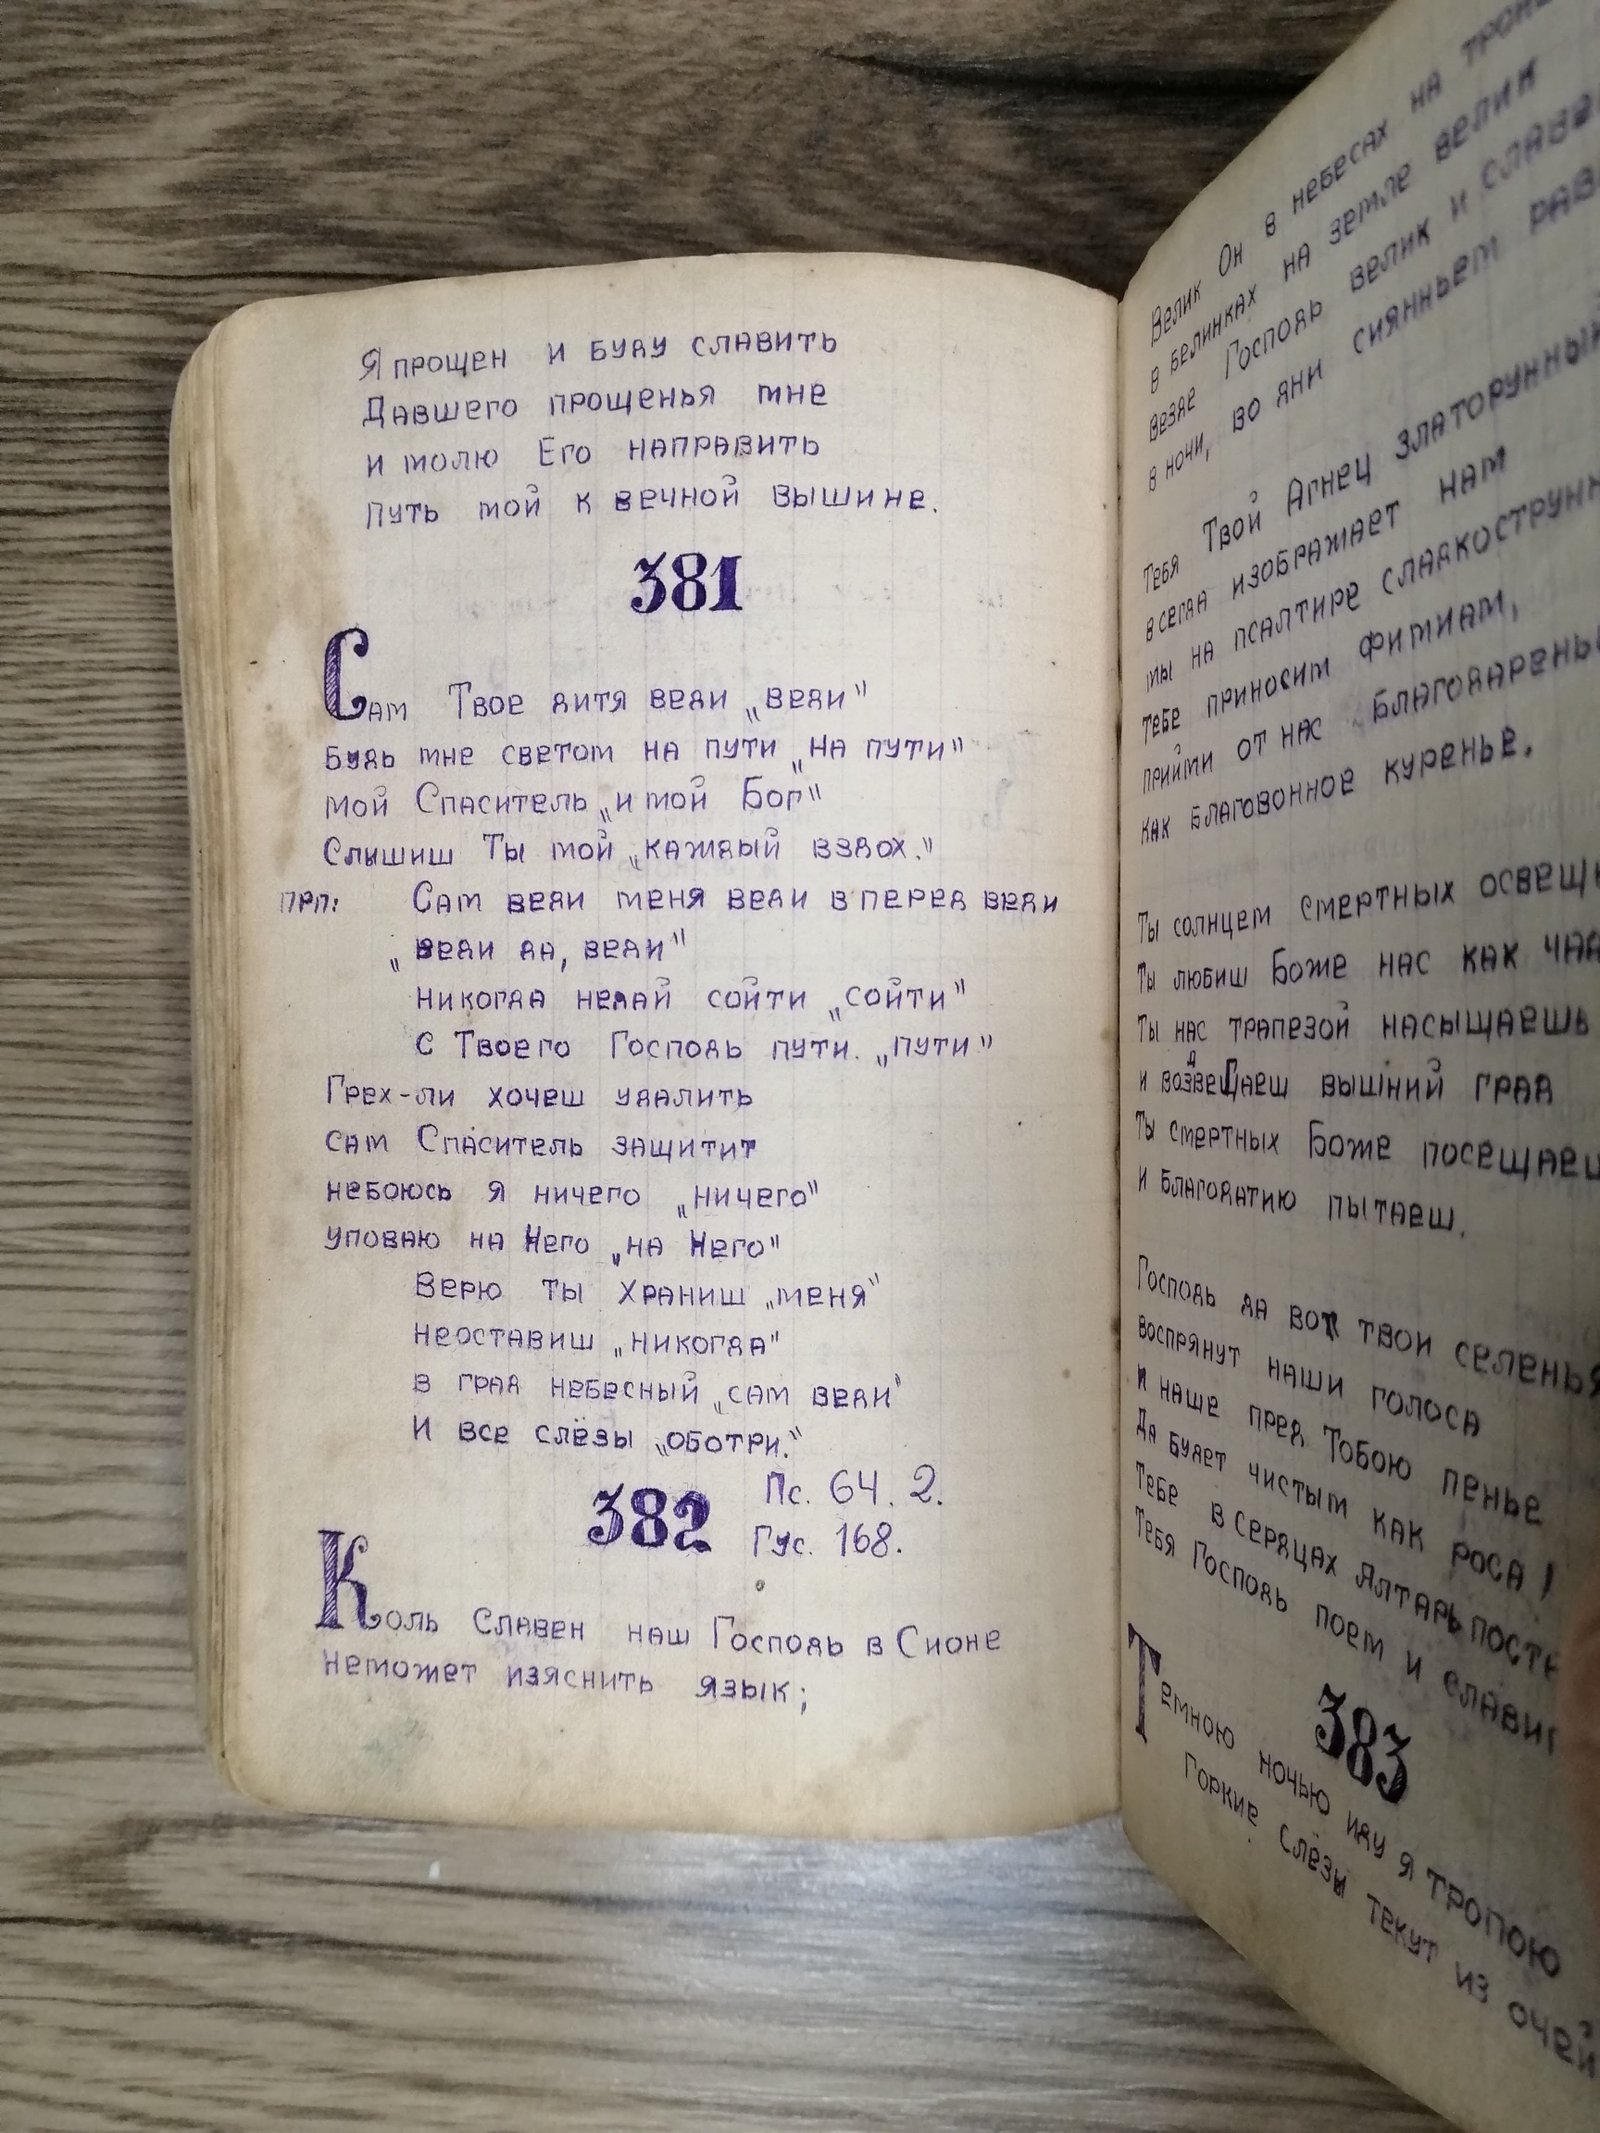 Я прощен и буду славить
Давшего прощенья мне
и молю Его направить
путь мой к вечной вышине.
381
Сам Твое дитя веди „веди"
Будь мне светом на пути „на пути"
мой Спаситель „и мой Бог"
Слышиш Ты мой „каждый вздох."
прп: Сам веди меня веди в перед веди
„веди да, веди"
никогда недай сойти „сойти"
с Твоего Господь пути. „пути"
Грех-ли хочеш удалить
сам Спаситель защитит
небоюсь я ничего „ничего"
уповаю на Него „на Него"
Верю ты храниш „меня"
неоставиш „никогда"
в град небесный „сам веди"
И все слёзы „оботри."
382 Пс. 64. 2.
Гус. 168.
Коль Славен наш Господь в Сионе
неможет изяснить язык;
Велик Он в небесах на
в белинках на земле велик
везде Господь велик и
в ночи, во дни сияньем
тебя Твой Агнец златорунный
всегда изображает нам
мы на псалтире
тебе приносим фимиам,
прийми от нас
как благовонное куренье.
Ты солнцем смертных
Ты любиш Боже нас как
Ты нас трапезой насыщаешь
и воздвегаеш вышний град
Ты смертных Боже
и благодатию пытаеш.
Господь да вот твои селенья
воспрянут наши голоса
и наше пред Тобою пенье
Да будет чистым как роса!
Тебе в сердцах Алтарь
Тебя Господь поем и
383
Темною ночью иду я тропою
Горкие слёзы текут из очей